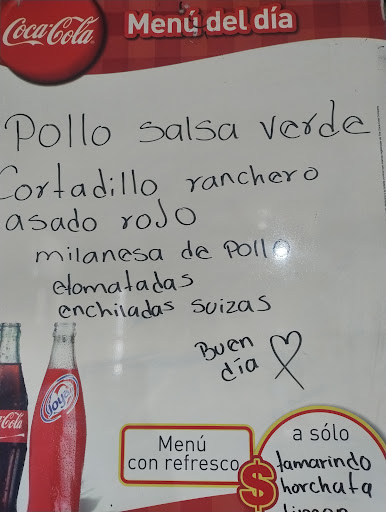 Coca-Cola
Menú del día
Pollo salsa verde
Cortadillo ranchero
asado rojo
milanesa de pollo
etomatadas
enchiladas suizas
Buen
día
Cola
Joya
Menú
con refresco
$
a sólo
tamarindo
horchata